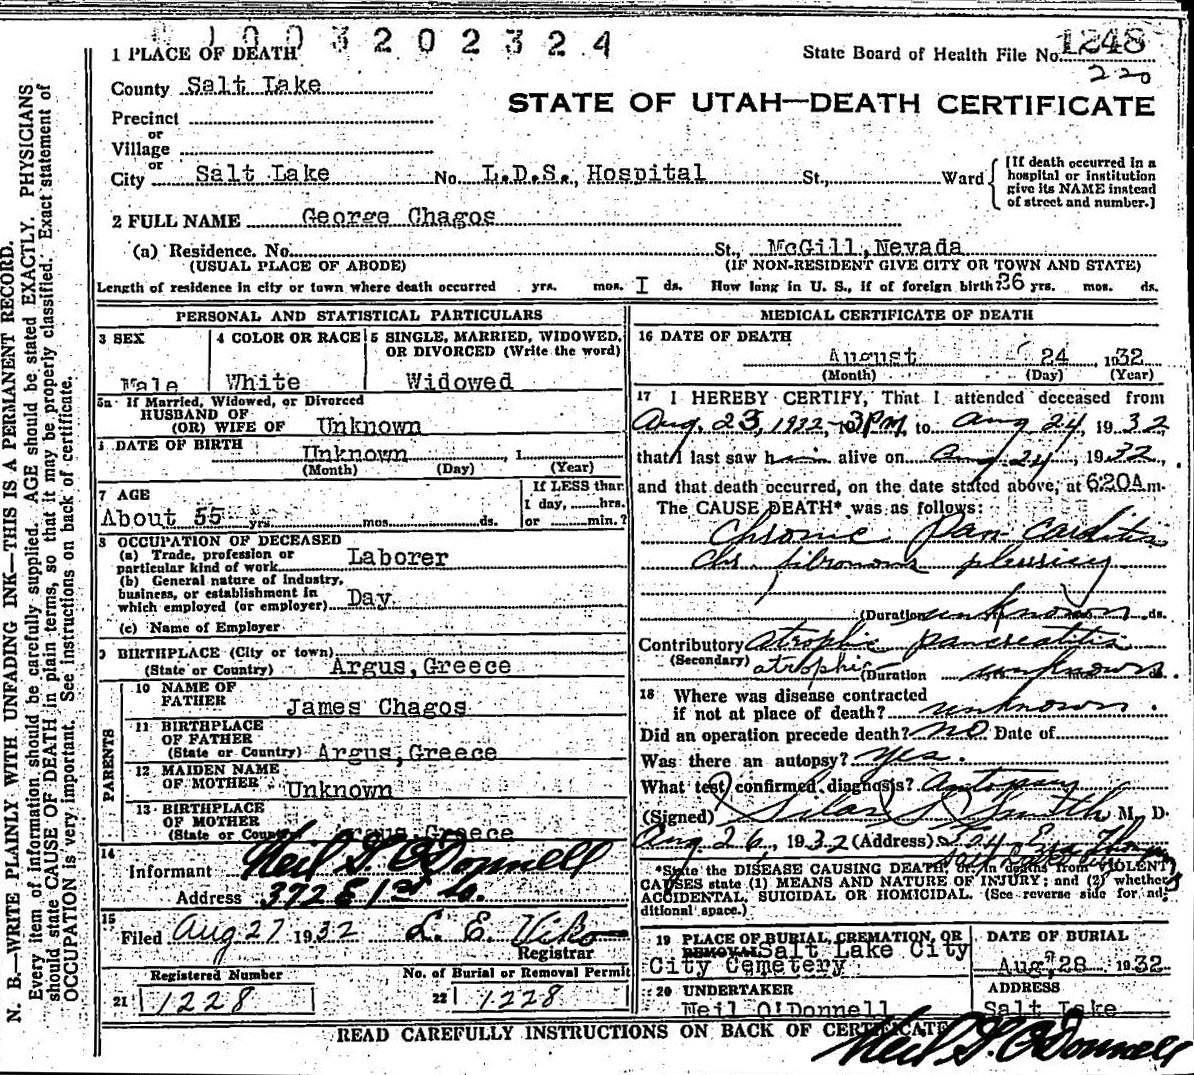 1003202324
1 PLACE OF DEATH
State Board of Health File No. 1248
220
County Salt Lake
STATE OF UTAH—DEATH CERTIFICATE
Precinct
or
Village
or
City Salt Lake No. L.D.S., Hospital St., Ward
[If death occurred in a hospital or institution give its NAME instead of street and number.]
2 FULL NAME George Chagos
(a) Residence. No. St., McGill, Nevada
(USUAL PLACE OF ABODE) (IF NON-RESIDENT GIVE CITY OR TOWN AND STATE)
Length of residence in city or town where death occurred yrs. mos. I ds. How long in U. S., if of foreign birth? 36 yrs. mos. ds.
PERSONAL AND STATISTICAL PARTICULARS
3 SEX 4 COLOR OR RACE 5 SINGLE, MARRIED, WIDOWED,
OR DIVORCED (Write the word)
Male White Widowed
5a If Married, Widowed, or Divorced
HUSBAND OF
(OR) WIFE OF Unknown
DATE OF BIRTH Unknown , 1
(Month) (Day) (Year)
7 AGE If LESS than
1 day, hrs.
About 55 yrs. mos. ds. or min.?
8 OCCUPATION OF DECEASED
(a) Trade, profession or
particular kind of work Laborer
(b) General nature of industry,
business, or establishment in
which employed (or employer) Day
(c) Name of Employer
9 BIRTHPLACE (City or town)
(State or Country) Argus, Greece
PARENTS
10 NAME OF
FATHER James Chagos
11 BIRTHPLACE
OF FATHER
(State or Country) Argus, Greece
12 MAIDEN NAME
OF MOTHER Unknown
13 BIRTHPLACE
OF MOTHER
(State or Country) Argus, Greece
14
Informant Neil G. O'Donnell
Address 372 E 1st So.
15
Filed Aug 27 1932 L. E. Viko
Registrar
Registered Number No. of Burial or Removal Permit
21 1228 22 1228
MEDICAL CERTIFICATE OF DEATH
16 DATE OF DEATH
August 24 1932
(Month) (Day) (Year)
17 I HEREBY CERTIFY, That I attended deceased from
Aug. 23, 1932 3 PM, to Aug 24, 1932
that I last saw him alive on Aug 24, 1932,
and that death occurred, on the date stated above, at 6:20 A m.
The CAUSE DEATH* was as follows:
Chronic Pan Carditis
Chr. fibrinous pleurisy
(Duration unknown ds.
Contributory atrophic pancreatitis
(Secondary) atrophic (Duration unknown ds.
18 Where was disease contracted
if not at place of death? unknown.
Did an operation precede death? no Date of
Was there an autopsy? Yes.
What test confirmed diagnosis? Autopsy
(Signed) Silas S. Smith M. D.
Aug 26, 1932 (Address)
*State the DISEASE CAUSING DEATH, or, in deaths from VIOLENT
CAUSES state (1) MEANS AND NATURE OF INJURY; and (2) whether
ACCIDENTAL, SUICIDAL OR HOMICIDAL. (See reverse side for ad-
ditional space.)
19 PLACE OF BURIAL, CREMATION, OR
REMOVAL Salt Lake City
City Cemetery
DATE OF BURIAL
Aug, 28 1932
20 UNDERTAKER
Neil O'Donnell
ADDRESS
Salt Lake
READ CAREFULLY INSTRUCTIONS ON BACK OF CERTIFICATE
Neil G. O'Donnell
N. B.—WRITE PLAINLY WITH UNFADING INK—THIS IS A PERMANENT RECORD.
Every item of information should be carefully supplied. AGE should be stated EXACTLY. PHYSICIANS
should state CAUSE OF DEATH in plain terms, so that it may be properly classified. Exact statement of
OCCUPATION is very important. See instructions on back of certificate.